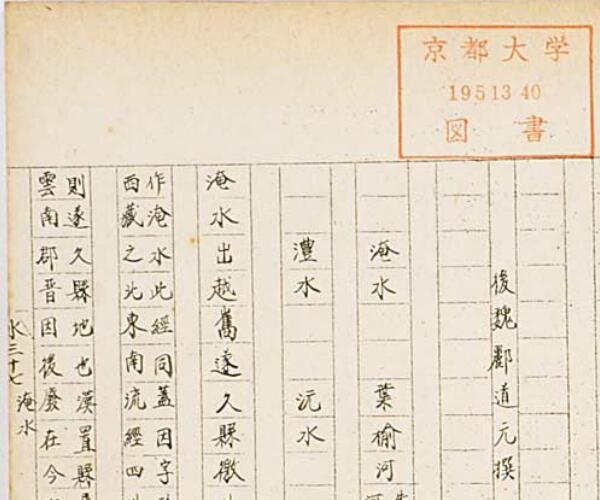 京都大学
1951340
図書
後魏酈道元撰
淹水 葉榆河
澧水 沅水
淹水出越嶲遂久縣徼
作淹水此經同蓋因字
西藏之北東南流經四
則遂久縣地也漢置縣
雲南郡晉因後廢在今
水三十七 淹水